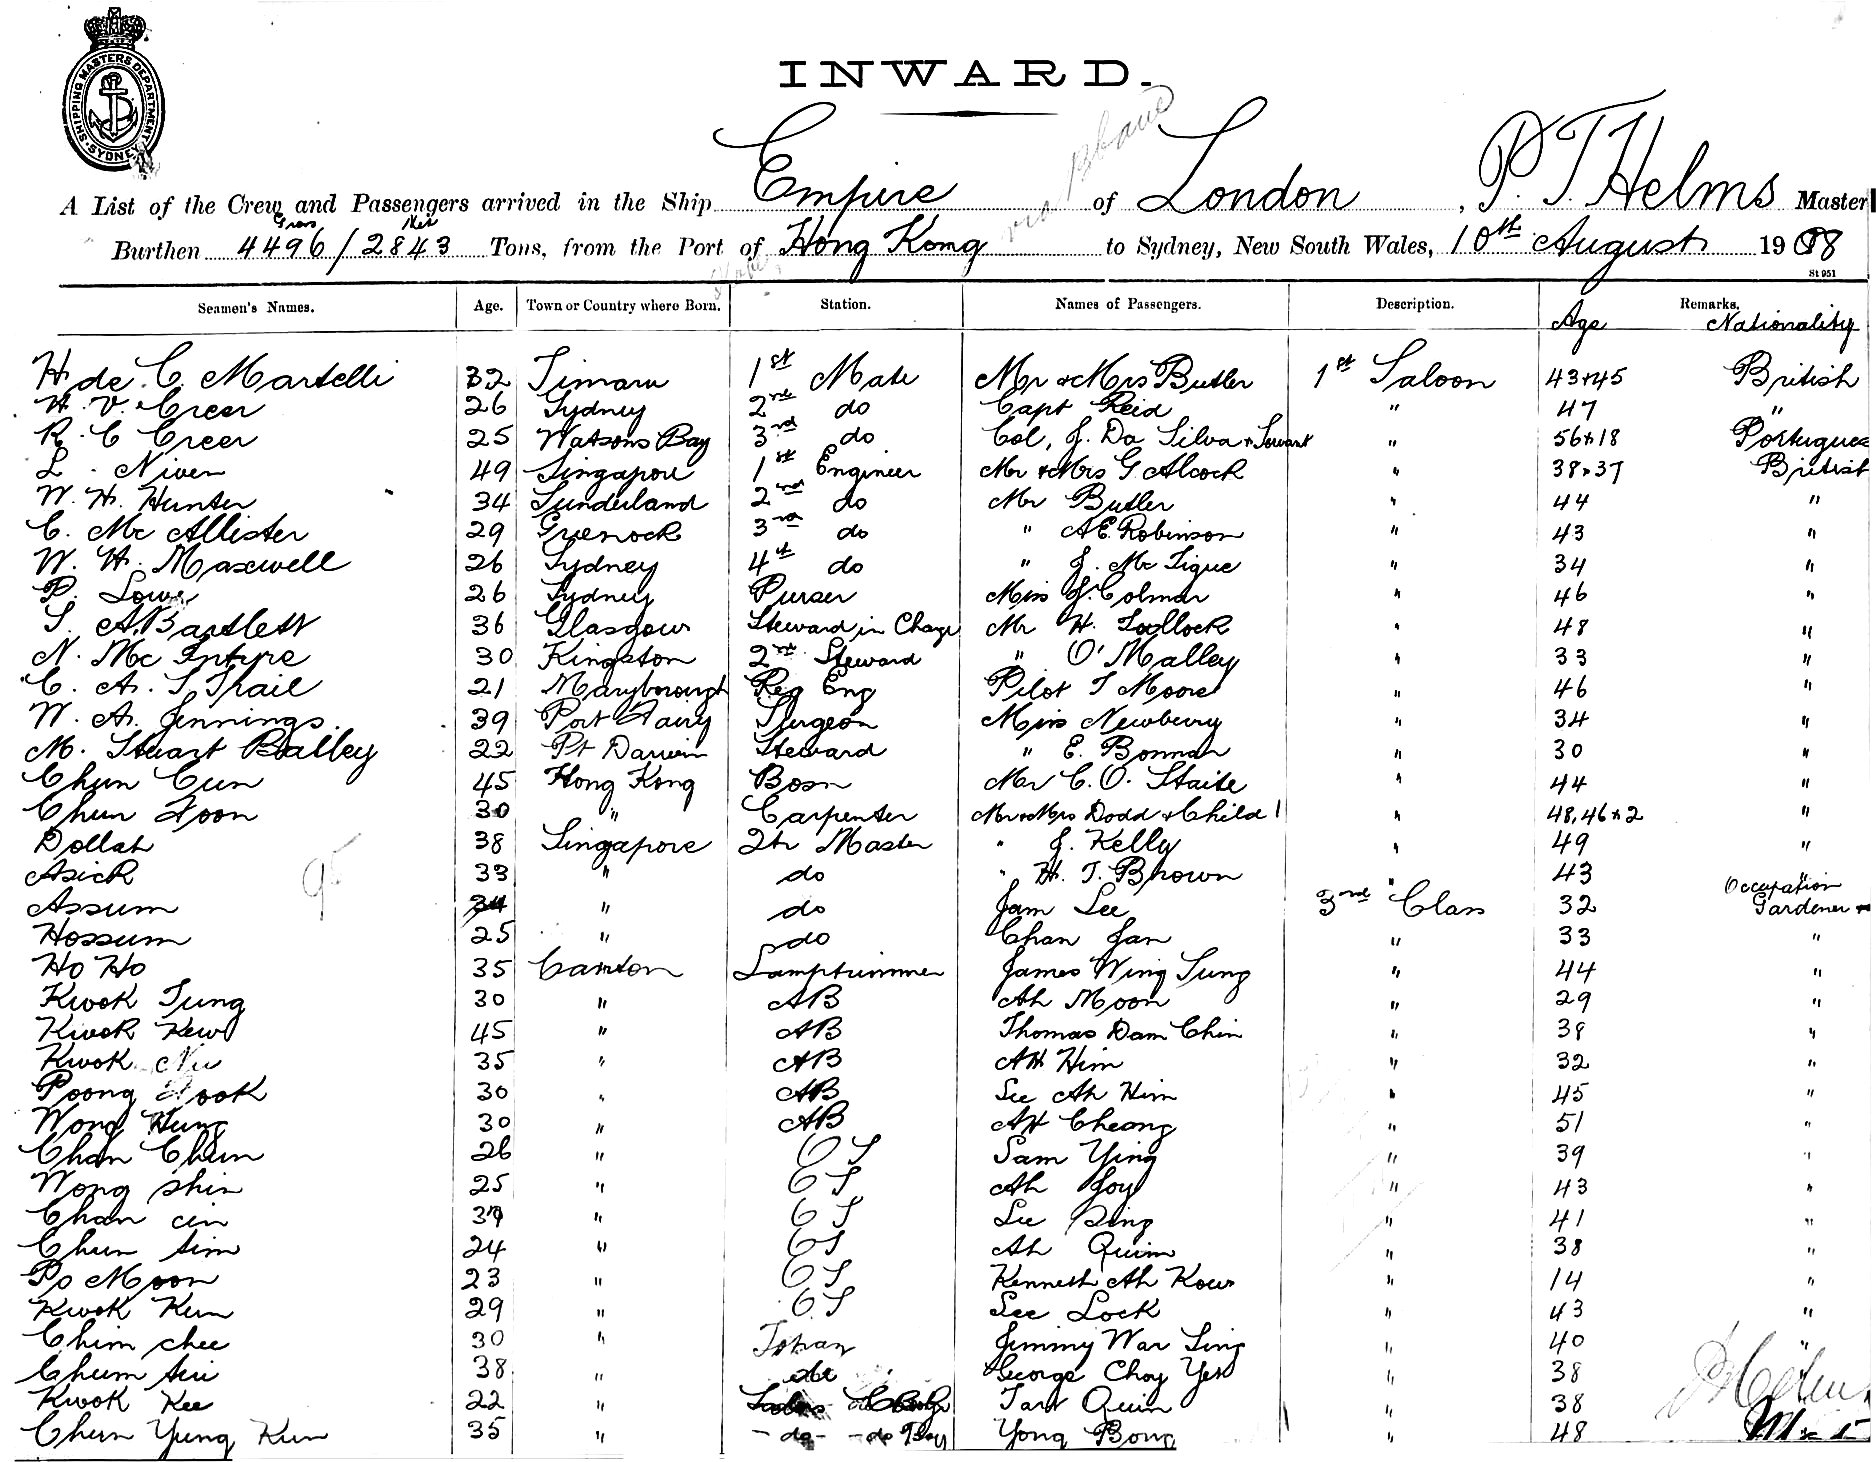 SHIPPING MASTERS DEPARTMENT
SYDNEY
INWARD.
A List of the Crew and Passengers arrived in the Ship Empire of London, P. T. Helms Master
Gross Net
Burthen 4496/2843 Tons, from the Port of Hong Kong via ports to Sydney, New South Wales, 10th August 1908
St 951
Seamen's Names. Age. Town or Country where Born. Station. Names of Passengers. Description. Age Remarks. Nationality
H. de C. Martelli 32 Timaru 1st Mate Mr & Mrs Butler 1st Saloon 43+45 British
H. V. Creer 26 Sydney 2nd do Capt Reid " 47 "
R. C Creer 25 Watsons Bay 3rd do Col, J. Da Silva & Servant " 56+18 Portuguese
L. Niven 49 Singapore 1st Engineer Mr & Mrs G. Alcock " 38+37 British
W. H. Hunter 34 Sunderland 2nd do Mr Butler " 44 "
C. Mc Allister 29 Greenock 3rd do " A E. Robinson " 43 "
W. H. Maxwell 26 Sydney 4th do " J. Mc Tigue " 34 "
P. Lowe 26 Sydney Purser Miss J. Colman " 46 "
S. A. Bartlett 36 Glasgow Steward in Charge Mr H. Tullock " 48 "
N. Mc Intyre 30 Kingston 2nd Steward " O'Malley " 33 "
C. A. T Trail 21 Maryborough Reg Eng Pilot T Moore " 46 "
W. A. Jennings 39 Port Fairy Surgeon Miss Newberry " 34 "
M. Stuart Bailey 22 Pt Darwin Steward " E. Bonnar " 30 "
Chun Cun 45 Hong Kong Bosn Mr C. O. Staite " 44 "
Chun Foon 30 " Carpenter Mr & Mrs Dodd & Child 1 " 48, 46 & 2 "
Dollah 38 Singapore 2tr Master " J. Kelly " 49 "
Asick 33 " do " H. T. Brown " 43 "
Occupation
Assum 34 " do Jam Lee 3rd Class 32 Gardener
Hossum 25 " do Chan Jan " 33 "
Ho Ho 35 Canton Lamptrimmer James Wing Sung " 44 "
Kwok Tung 30 " AB Ah Moon " 29 "
Kwok Kew 45 " AB Thomas Dam Chin " 38 "
Kwok Nu 35 " AB Ah Him " 32 "
Poong Fook 30 " AB See Ah Him " 45 "
Wong Hung 30 " AB Ah Cheong " 51 "
Chan Chun 26 " OS Sam Ying " 39 "
Wong Shin 25 " OS Ah Joy " 43 "
Chan Cin 39 " OS Lee Sing " 41 "
Chun Sim 24 " OS Ah Quim " 38 "
Po Moon 23 " OS Kenneth Ah Kow " 14 "
Kwok Kun 29 " OS See Lock " 43 "
Chim Chee 30 " Jimmy War Sing " 40 "
Chum Sui 38 " do George Choy Yew " 38
Kwok Kee 22 " Tarr Quin " 38
Chun Yung Kun 35 " - do - do Boy Yong Bong " 48